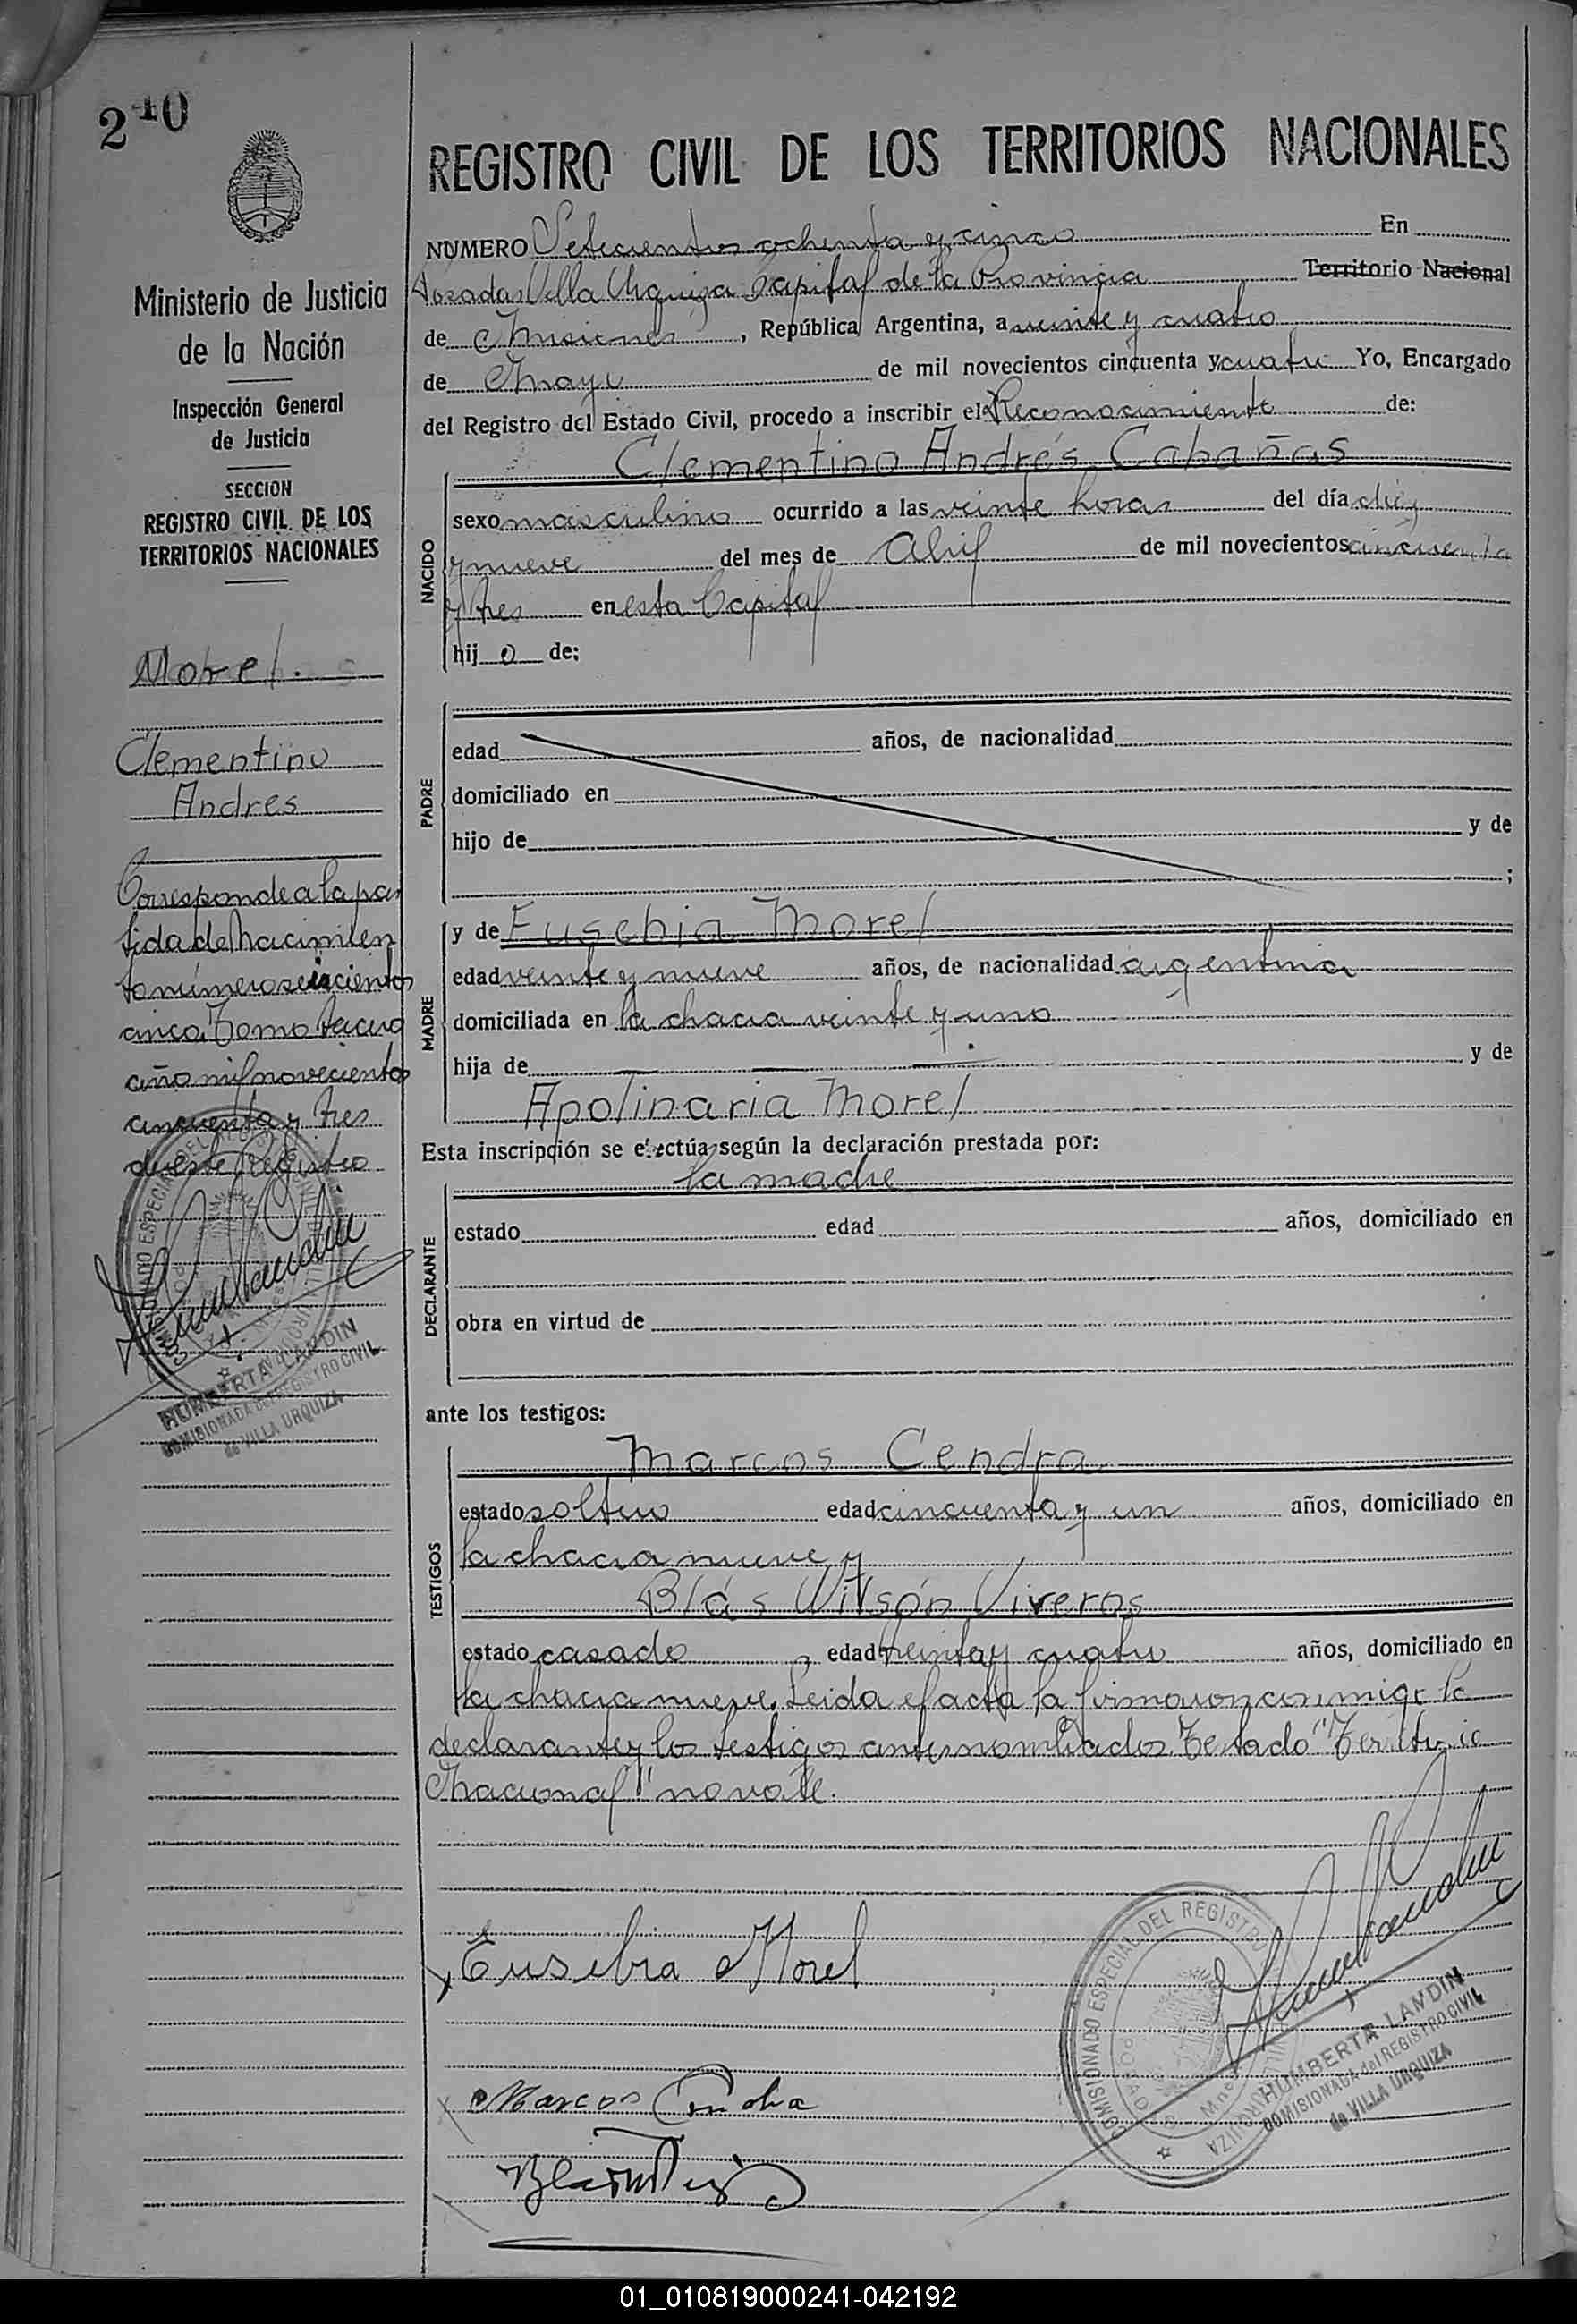 240
Ministerio de Justicia
de la Nación
Inspección General
de Justicia
SECCION
REGISTRO CIVIL DE LOS
TERRITORIOS NACIONALES
Morel.
Clementino
Andres
Corresponde a la par
tida de nacimien
to número seiscientos
cinco, Tomo tercero
año mil novecientos
cincuenta y tres
de este Registro
HUMBERTA LANDIN
COMISIONADA del REGISTRO CIVIL
de VILLA URQUIZA
REGISTRO CIVIL DE LOS TERRITORIOS NACIONALES
NUMERO Setecientos ochenta y cinco En
Posadas Villa Urquiza Capital de la Provincia Territorio Nacional
de Misiones, República Argentina, a veinte y cuatro
de Mayo de mil novecientos cincuenta y cuatro Yo, Encargado
del Registro del Estado Civil, procedo a inscribir el Reconocimiento de:
Clementino Andrés Cabañas
NACIDO
sexo masculino ocurrido a las veinte horas del día diez
y nueve del mes de Abril de mil novecientos cincuenta
y tres en esta Capital
hijo de:
PADRE
edad años, de nacionalidad
domiciliado en
hijo de y de
;
MADRE
y de Eusebia Morel
edad veinte y nueve años, de nacionalidad argentina
domiciliada en la chacra veinte y uno
hija de y de
Apolinaria Morel
Esta inscripción se efectúa según la declaración prestada por:
la madre
DECLARANTE
estado edad años, domiciliado en
obra en virtud de
ante los testigos:
TESTIGOS
Marcos Cendra
estado soltero edad cincuenta y un años, domiciliado en
la chacra nueve y
Blás Wilsón Viveros
estado casado, edad treinta y cuatro años, domiciliado en
la chacra nueve. Leida el acta la firmaron conmigo la
declarante y los testigos antes nombrados. Testado "Territorio
Nacional" no vale.
Eusebia Morel
Marcos Cendra
COMISIONADO ESPECIAL DEL REGISTRO
VILLA URQUIZA
POSADAS Mnes
HUMBERTA LANDIN
COMISIONADA del REGISTRO CIVIL
de VILLA URQUIZA
01_010819000241-042192